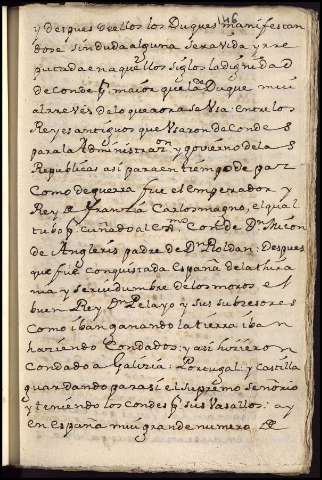 y despues de ellos los Duques manifestan
dose sin duda alguna ser avida y rre
putada en aquellos siglos la dignidad
de Conde pr. maior que la de Duque mui
al rreves de lo que aora se Usa: entre los
Reyes antiguos que Usaron de Condes
para la Administraon y governo de las
Republicas asi para en tiempo de paz
Como de guerra fue el emperador y
Rey de Franzia Carlomagno, el qual
tubo pr. cuñado al Conde Dn. Micon
de Angleris padre de Dn. Roldan: despues
que fue conquistada españa de la tira
nia y servidumbre de los moros el
buen Rey Dn. Pelayo y sus subzesores
Como iban ganando la tierra iban
haziendo Condados: y asi hizieron
Condado a Galizia: Portugal: y Castilla
guardando para si el supremo señorio
y teniendo los condes pr. sus vasallos: ay
en españa mui grande numero de